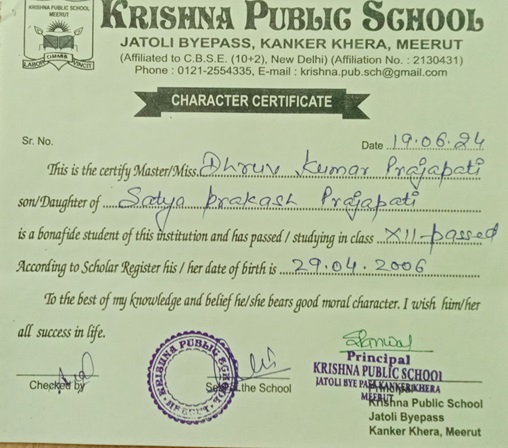 KRISHNA PUBLIC SCHOOL
MEERUT
KRISHNA PUBLIC SCHOOL
JATOLI BYEPASS, KANKER KHERA, MEERUT
(Affiliated to C.B.S.E. (10+2), New Delhi) (Affiliation No. : 2130431)
Phone : 0121-2554335, E-mail : krishna.pub.sch@gmail.com
LABOR OMNIA VINCIT
CHARACTER CERTIFICATE
Sr. No.
Date 19.06.24
This is the certify Master/Miss. Dhruv Kumar Prajapati
son/Daughter of Satya prakash Prajapati
is a bonafide student of this institution and has passed / studying in class XII-passed
According to Scholar Register his / her date of birth is 29.04.2006
To the best of my knowledge and belief he/she bears good moral character. I wish him/her
all success in life.
KRISHNA PUBLIC
MEERUT
Principal
KRISHNA PUBLIC SCHOOL
JATOLI BYE PASS KANKERKHERA
MEERUT
Checked by
Seal of the School
Krishna Public School
Jatoli Byepass
Kanker Khera, Meerut